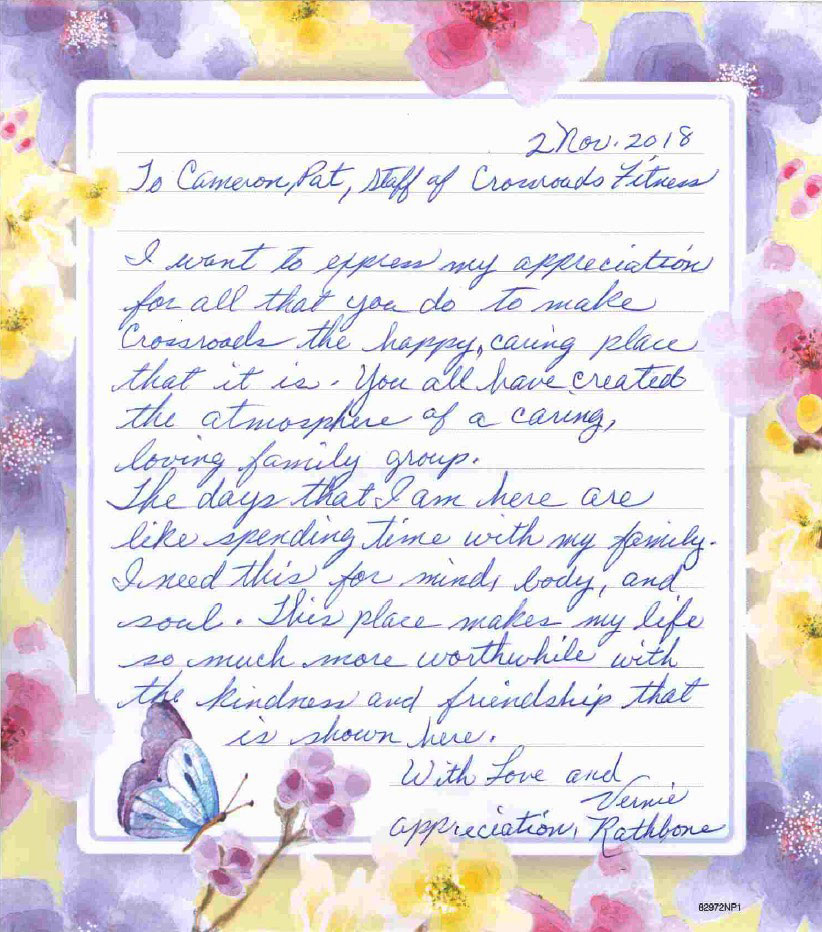 2 Nov. 2018
To Cameron, Pat, Staff of Crossroads Fitness
I want to express my appreciation
for all that you do to make
Crossroads the happy, caring place
that it is. You all have created
the atmosphere of a caring,
loving family group.
The days that I am here are
like spending time with my family.
I need this for mind, body, and
soul. This place makes my life
so much more worthwhile with
the kindness and friendship that
is shown here.
With Love and
appreciation, Vernie
Rathbone
62972NP1